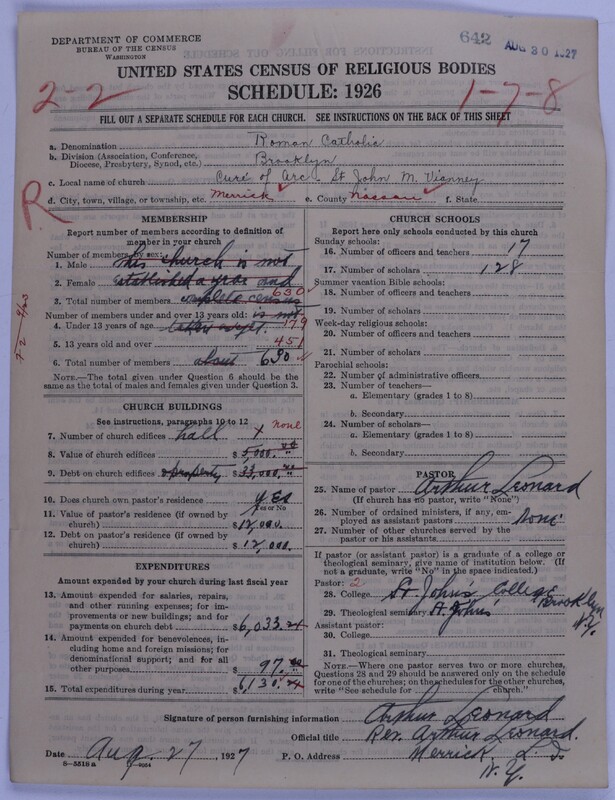 DEPARTMENT OF COMMERCE
BUREAU OF THE CENSUS
WASHINGTON
642 AUG 30 1927
UNITED STATES CENSUS OF RELIGIOUS BODIES
SCHEDULE: 1926
2-2
1-7-8
FILL OUT A SEPARATE SCHEDULE FOR EACH CHURCH. SEE INSTRUCTIONS ON THE BACK OF THIS SHEET
a. Denomination Roman Catholic
b. Division (Association, Conference, Diocese, Presbytery, Synod, etc.) Brooklyn
c. Local name of church Cure of Arc. St John M. Vianney
d. City, town, village, or township, etc. Merrick e. County Nassau f. State
R
MEMBERSHIP
Report number of members according to definition of
member in your church
Number of members by sex:
1. Male this church is not
2. Female established a year and
3. Total number of members complete census 630
Number of members under and over 13 years old: is not
4. Under 13 years of age 179
5. 13 years old and over 451
6. Total number of members about 630
NOTE.—The total given under Question 6 should be
same as the total of males and females given under Question 3.
CHURCH BUILDINGS
See instructions, paragraphs 10 to 12
7. Number of church edifices hall 1 none
8. Value of church edifices $5,000.00
9. Debt on church edifices property $33,000.00
10. Does church own pastor's residence? Yes
Yes or No
11. Value of pastor's residence (if owned by
church) $12,000.
12. Debt on pastor's residence (if owned by
church) $12,000.
EXPENDITURES
Amount expended by your church during last fiscal year
13. Amount expended for salaries, repairs,
and other running expenses; for im-
provements or new buildings; and for
payments on church debt $6,033.24
14. Amount expended for benevolences,
including home and foreign missions; for
denominational support; and for all
other purposes $97.00
15. Total expenditures during year $6,130.24
CHURCH SCHOOLS
Report here only schools conducted by this church
Sunday schools:
16. Number of officers and teachers 17
17. Number of scholars 128
Summer vacation Bible schools:
18. Number of officers and teachers
19. Number of scholars
Week-day religious schools:
20. Number of officers and teachers
21. Number of scholars
Parochial schools:
22. Number of administrative officers
23. Number of teachers—
a. Elementary (grades 1 to 8)
b. Secondary
24. Number of scholars—
a. Elementary (grades 1 to 8)
b. Secondary
PASTOR
25. Name of pastor Arthur Leonard
(If church has no pastor, write "None")
26. Number of ordained ministers, if any, em-
ployed as assistant pastors none
27. Number of other churches served by the
pastor or his assistants
If pastor (or assistant pastor) is a graduate of a college or
theological seminary, give name of institution below. (If
not a graduate, write "No" in the space indicated.)
Pastor: 2
28. College St. John's College Brooklyn N.Y.
29. Theological seminary St. John's
Assistant pastor:
30. College
31. Theological seminary
NOTE.—Where one pastor serves two or more churches,
Questions 28 and 29 should be answered only on the schedule
for one of the churches; on the schedules for the other churches,
write "See schedule for church."
Signature of person furnishing information Arthur Leonard
Official title Rev. Arthur Leonard.
Date Aug. 27 1927 P. O. Address Merrick, L. I.
N. Y.
8—5518 a